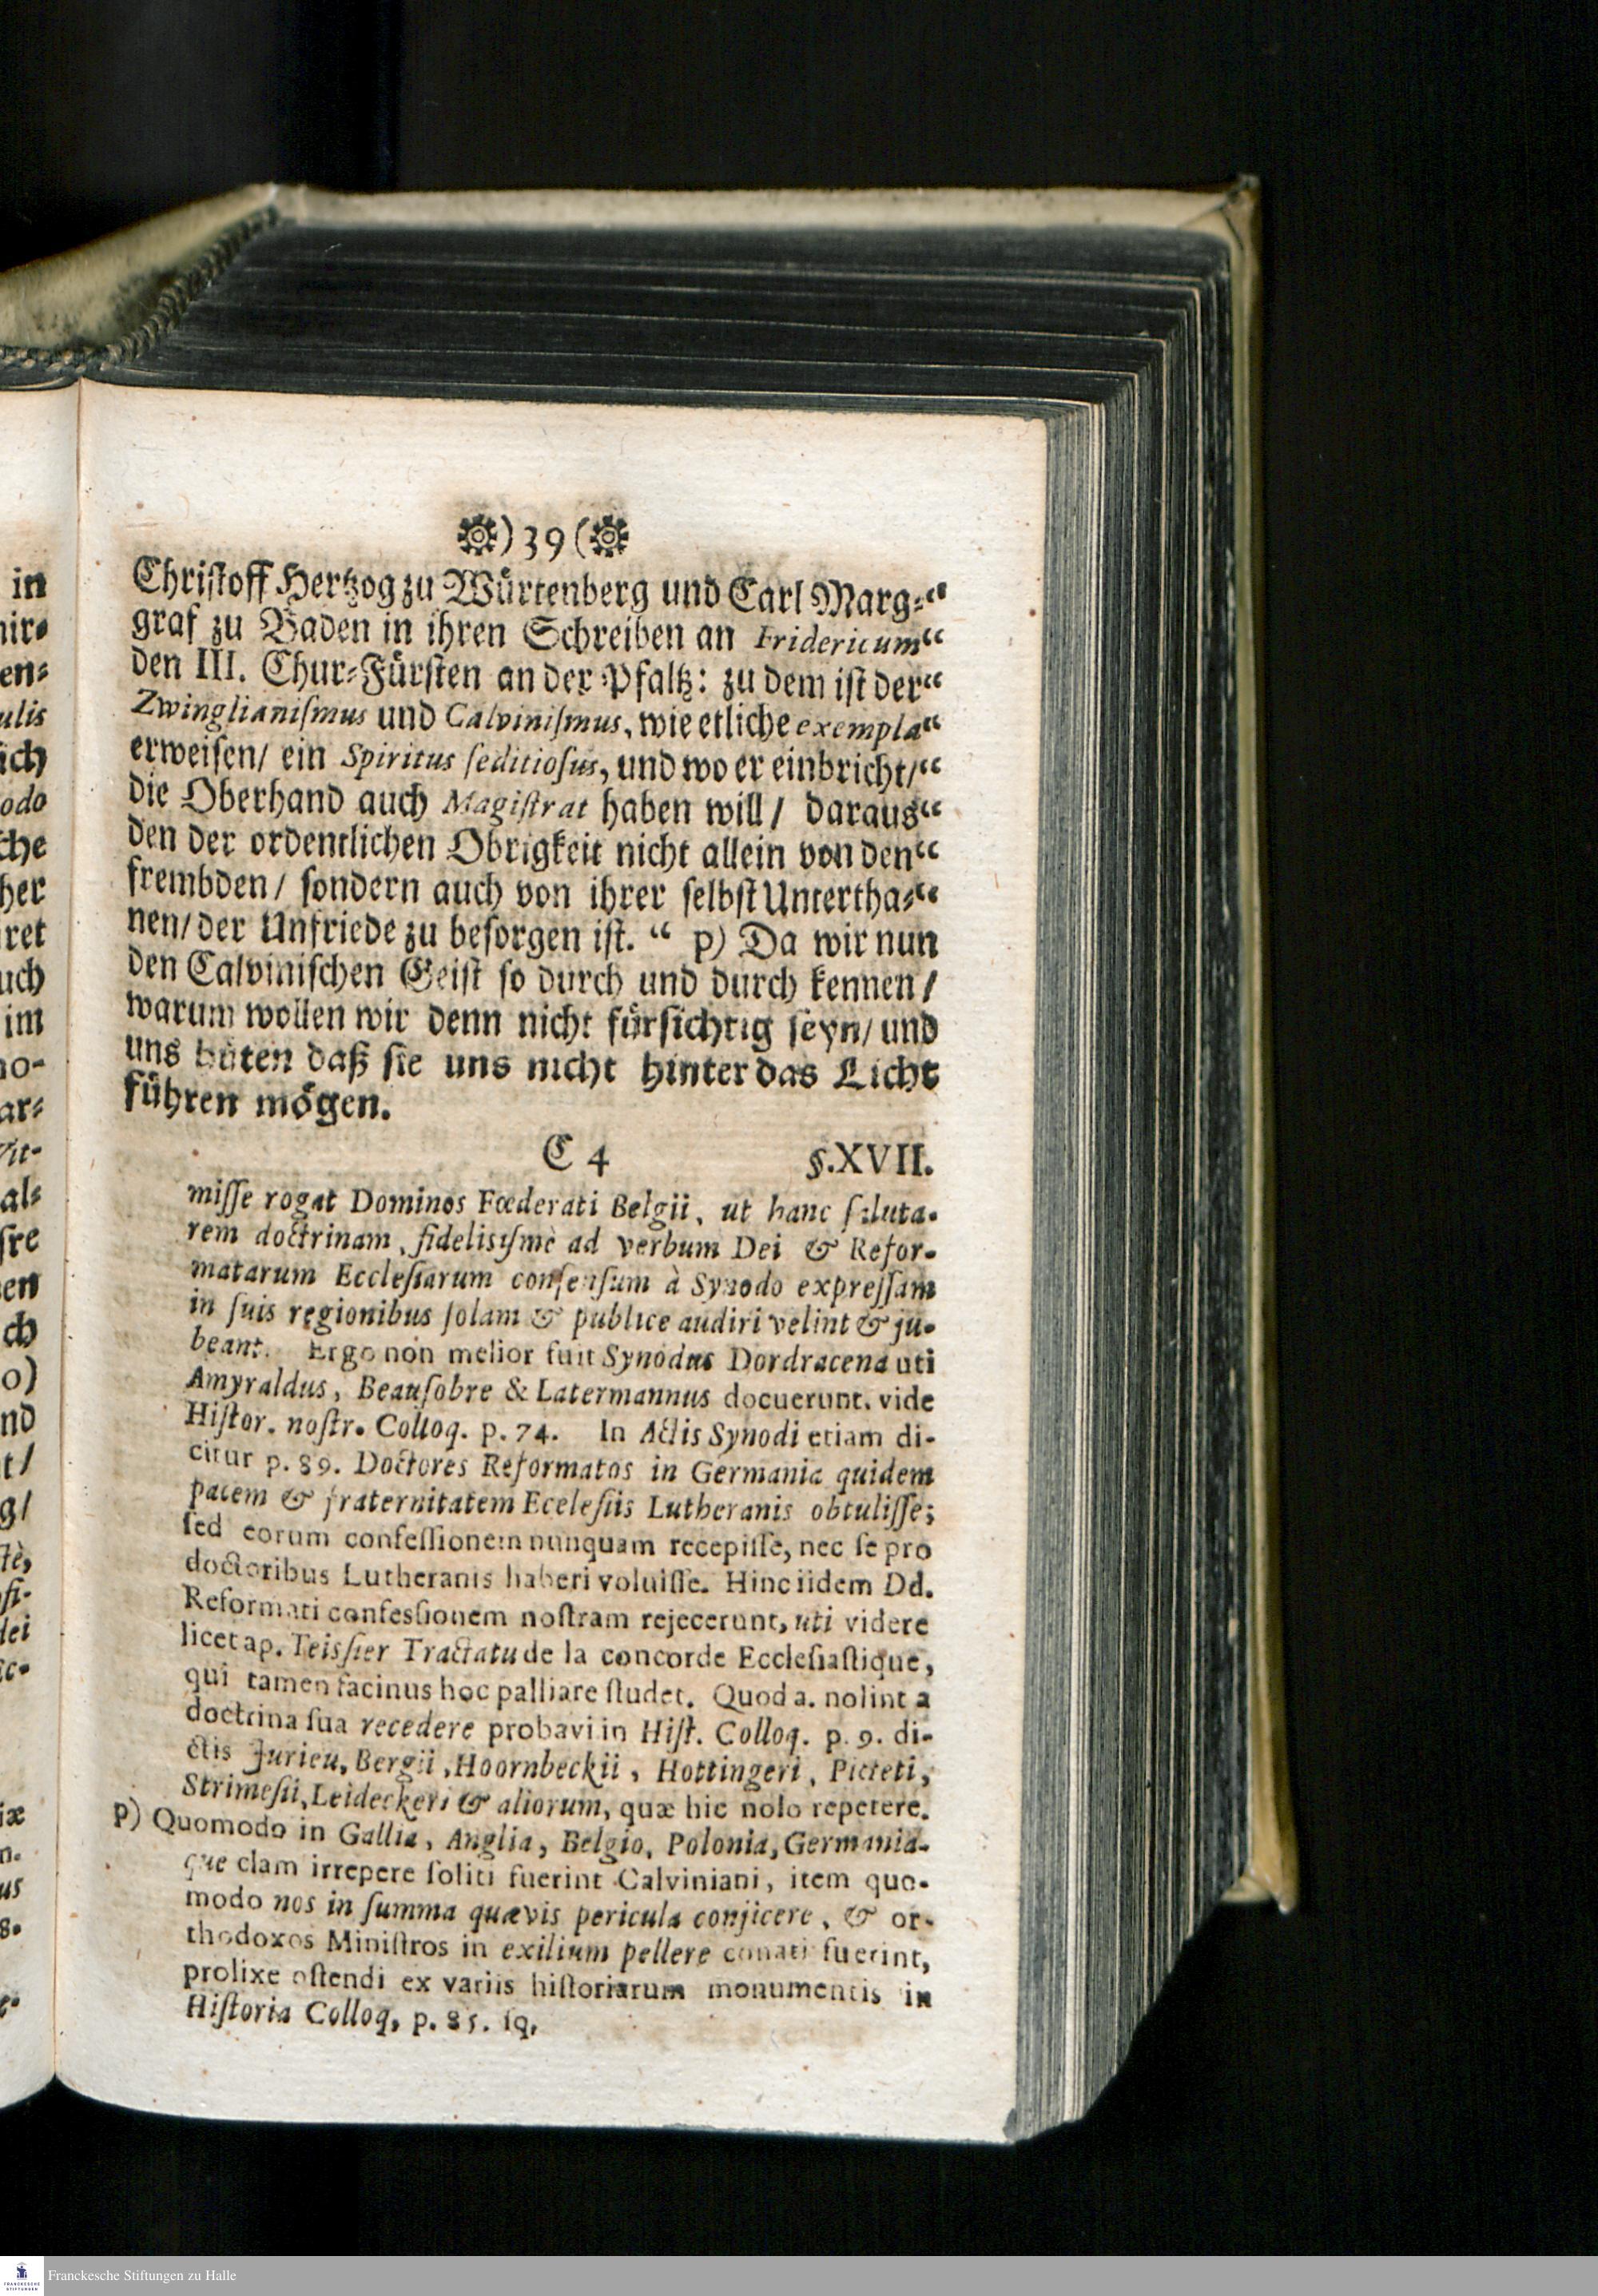 )39(
Chriſtoff Hertzog zu Würtenberg und Carl Marg-“
graf zu Baden in ihren Schreiben an Fridericum“
den III. Chur-Fürſten an der Pfaltz: zu dem iſt der“
Zwinglianiſmus und Calviniſmus, wie etliche exempla“
erweiſen/ ein Spiritus ſeditioſus, und wo er einbricht/“
die Oberhand auch Magiſtrat haben will/ daraus“
den der ordentlichen Obrigkeit nicht allein von den“
frembden/ ſondern auch von ihrer ſelbſt Untertha-“
nen/ der Unfriede zu beſorgen iſt. “ p) Da wir nun
den Calviniſchen Geiſt ſo durch und durch kennen/
warum wollen wir denn nicht fürſichtig ſeyn/ und
uns hüten daß ſie uns nicht hinter das Licht
führen mögen.
C 4 §.XVII.
miſſe rogat Dominos Fœderati Belgii, ut hanc ſaluta-
rem doctrinam, fidelisſmè ad verbum Dei & Refor-
matarum Eccleſiarum conſenſum à Synodo expreſſam
in ſuis regionibus ſolam & publice audiri velint & ju-
beant. Ergo non melior fuit Synodus Dordracena uti
Amyraldus, Beauſobre & Latermannus docuerunt. vide
Hiſtor. noſtr. Colloq. p. 74. In Actis Synodi etiam di-
citur p. 89. Doctores Reformatos in Germania quidem
pacem & fraternitatem Eceleſiis Lutheranis obtuliſſe;
ſed eorum confeſſionem nunquam recepiſſe, nec ſe pro
doctoribus Lutheranis haberi voluiſſe. Hinc iidem Dd.
Reformati confesſionem noſtram rejecerunt, uti videre
licet ap. Teisſier Tractatu de la concorde Eccleſiaſtique,
qui tamen facinus hoc palliare ſtudet. Quod a. nolint a
doctrina ſua recedere probavi in Hiſt. Colloq. p. 9. di-
ctis Jurieu, Bergii, Hoornbeckii, Hottingeri, Picteti,
Strimeſii, Leideckeri & aliorum, quæ hic nolo repetere.
p) Quomodo in Gallia, Anglia, Belgio, Polonia, Germania-
que clam irrepere ſoliti fuerint Calviniani, item quo-
modo nos in ſumma quævis pericula conjicere, & or-
thodoxos Miniſtros in exilium pellere conati fuerint,
prolixe oſtendi ex variis hiſtoriarum monumentis in
Hiſtoria Colloq, p. 85. ſq.
Franckesche Stiftungen zu Halle